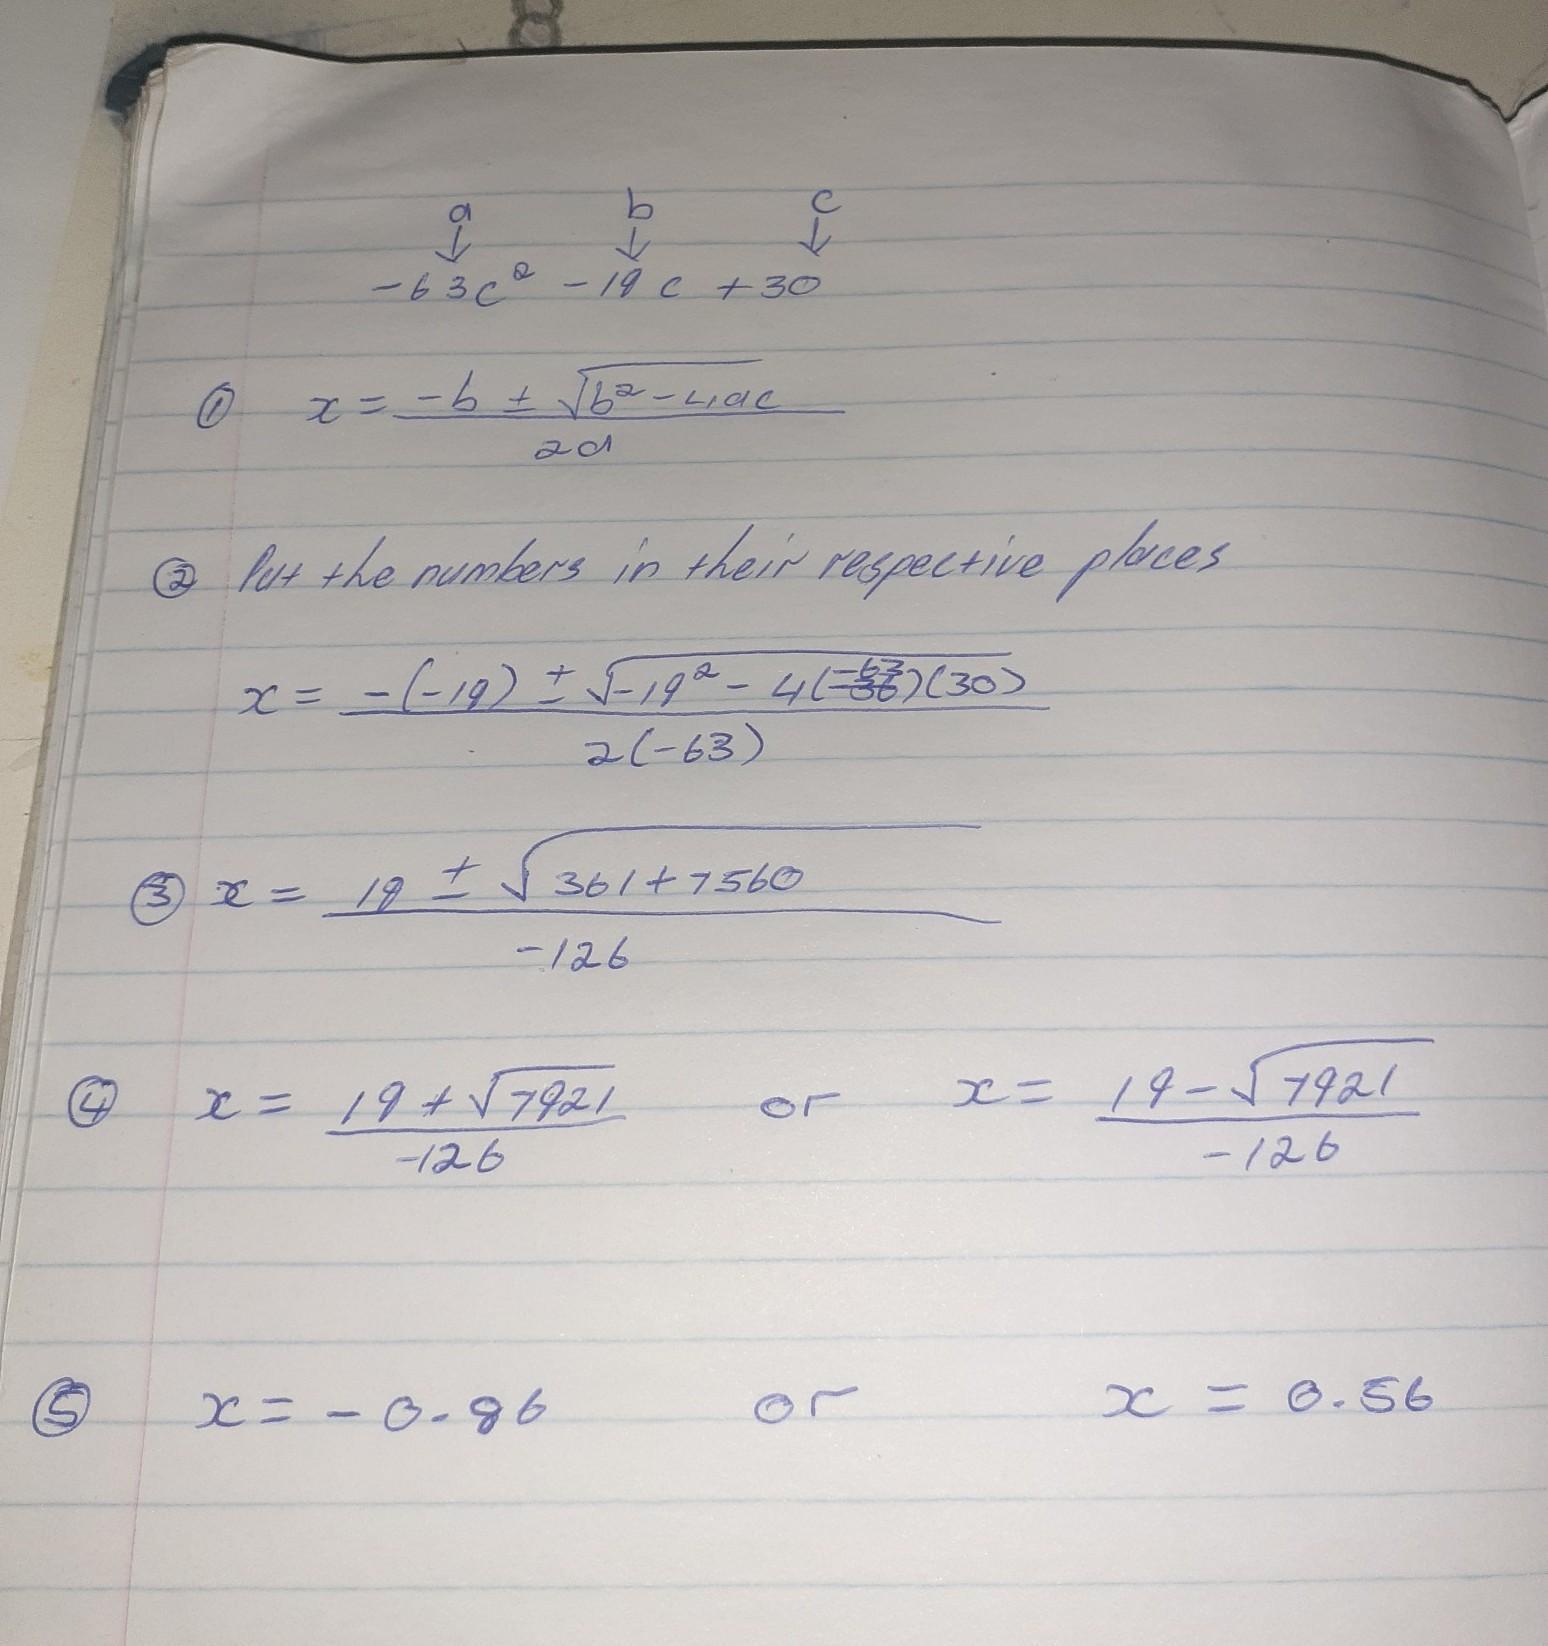 a b c
↓ ↓ ↓
-63c² -19c +30
① x = -b ± √b² - 4ac
2a
② Put the numbers in their respective places
x = -(-19) ± √-19² - 4(-63)(30)
2(-63)
③ x = 19 ± √361 + 7560
-126
④ x = 19 + √7921 or x = 19 - √7921
-126 -126
⑤ x = -0.86 or x = 0.56